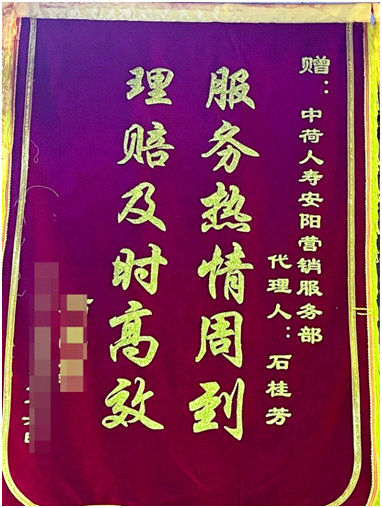 赠：中荷人寿安阳营销服务部
代理人：石桂芳
服务热情周到
理赔及时高效